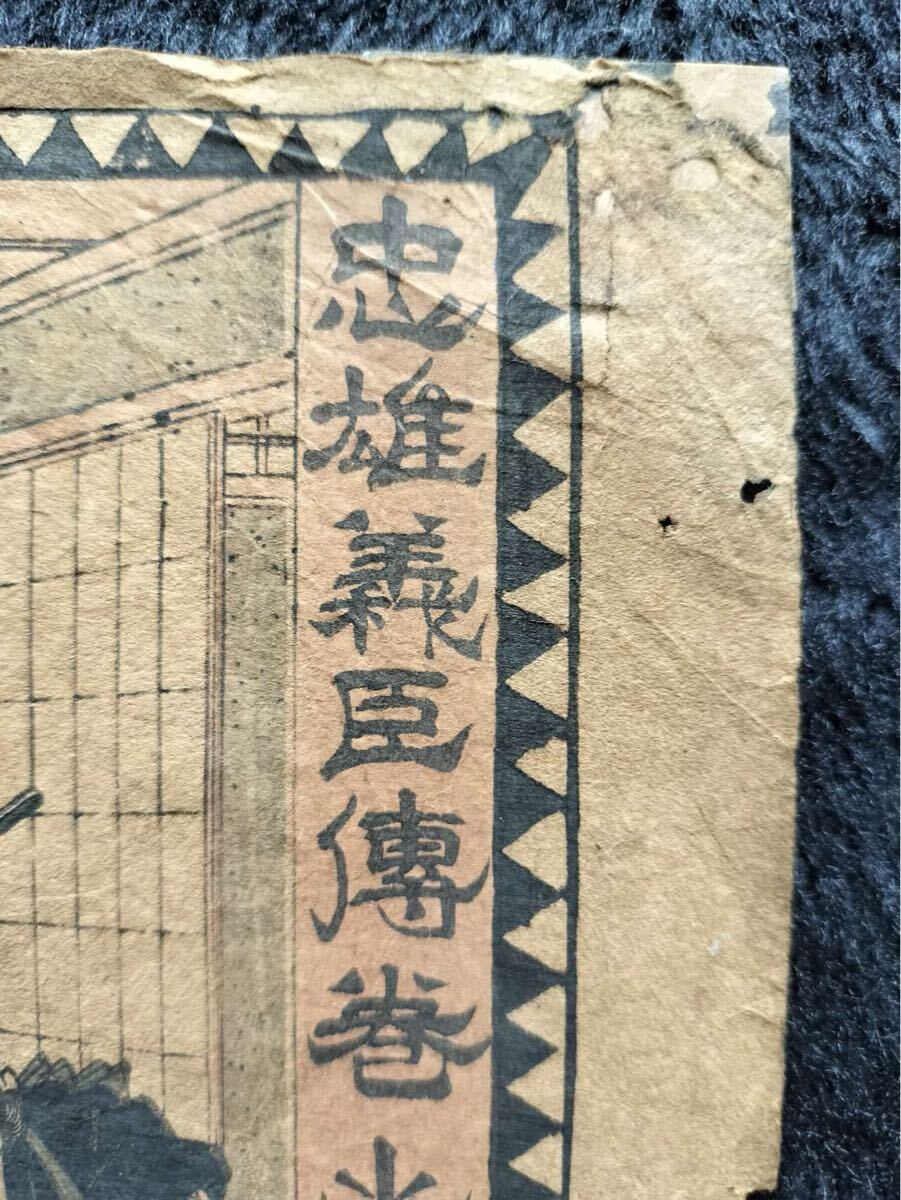 忠雄義臣傳巻